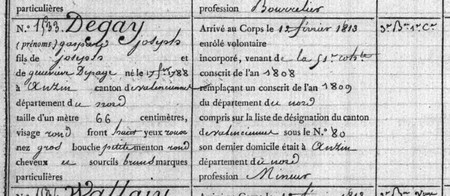 particulières
profession Bourrelier
N.° 1533. Degay
(prénoms) gaspard joseph
fils de joseph et
de né le 17 1788
à Anzin canton de valenciennes
département du nord
taille d'un mètre 66 centimètres,
visage rond front haut yeux roux
nez gros bouche petite menton rond
cheveux et sourcils bruns marques
particulières
Arrivé au Corps le 12 février 1813
enrôlé volontaire
incorporé, venant de la 51e cohte
conscrit de l'an 1808
remplaçant un conscrit de l'an 1809
du département du nord
compris sur la liste de désignation du canton
de valenciennes sous le N.° 80
son dernier domicile était à Anzin
département du nord
profession Mineur
3e Bon 1re Cie